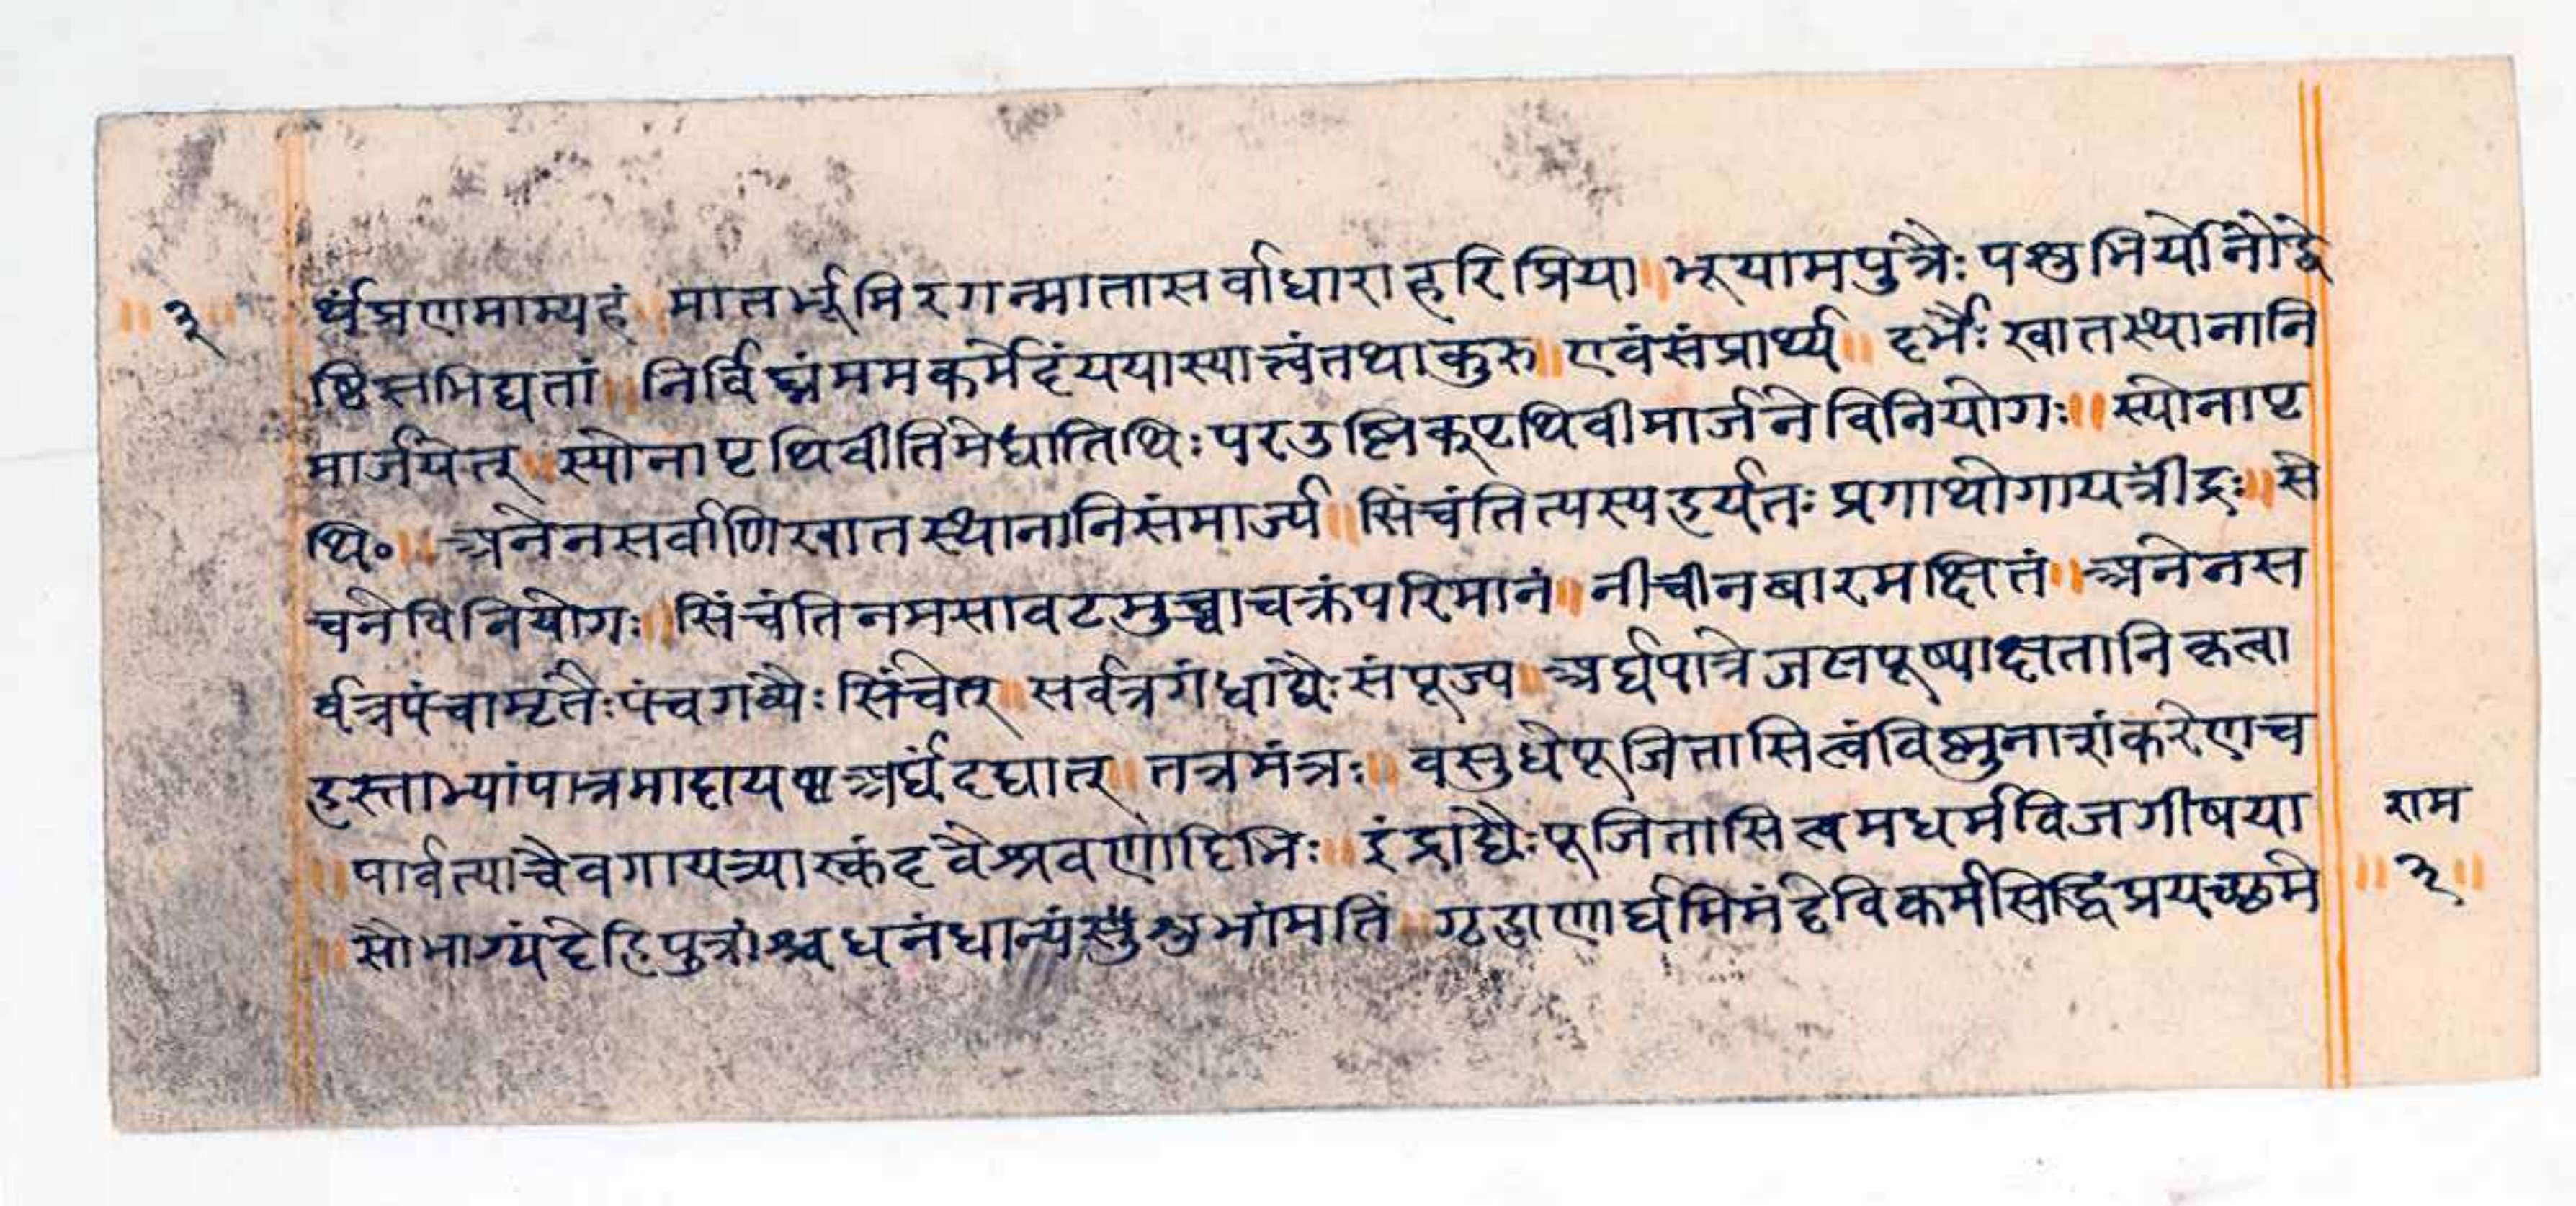 ॥ ३ ॥ र्थंप्रणमाम्यहं ॥ मातर्भूमिरगन्मातासर्वाधाराहरिप्रिया ॥ भूयामपुत्रैः पशुभिर्योनोद्वे
ष्टिसभिद्यतां ॥ निर्विघ्नंममकर्मेदंययास्यात्त्वंतथाकुरु ॥ एवंसंप्रार्थ्य ॥ दर्भैः खातस्थानानि
मार्जयेत् ॥ स्योनापृथिवीतिमेधातिथिः परउष्णिक्पृथिवीमार्जनेविनियोगः ॥ स्योनापृ
थि० ॥ अनेनसर्वाणिखातस्थानानिसंमार्ज्य ॥ सिंचंतित्यस्यहर्यतः प्रगाथोगायत्रींद्रः ॥ से
चनेविनियोगः ॥ सिंचंतिनमसावटमुच्चाचक्रंपरिमानं ॥ नीचीनबारमक्षितं ॥ अनेनस
र्वत्रपंचामृतैः पंचगव्यैः सिंचेत् ॥ सर्वत्रगंधाद्यैः संपूज्य ॥ अर्घपात्रेजलपूष्पाक्षतानिकृत्वा
हस्ताभ्यांपात्रमादाय अर्घंदद्यात् ॥ तत्रमंत्रः ॥ वसुधेपूजितासित्वंविष्णुनाशंकरेणच
॥ पार्वत्याचैवगायत्र्यास्कंदवैश्रवणादिभिः ॥ इंद्राद्यैः पूजितासित्वमधर्मविजगीषया
॥ सौभाग्यंदेहिपुत्रांश्चधनंधान्यं शुभांमतिं ॥ गृहाणार्घमिमंदेविकर्मसिद्धिंप्रयच्छमे
राम
॥ ३ ॥